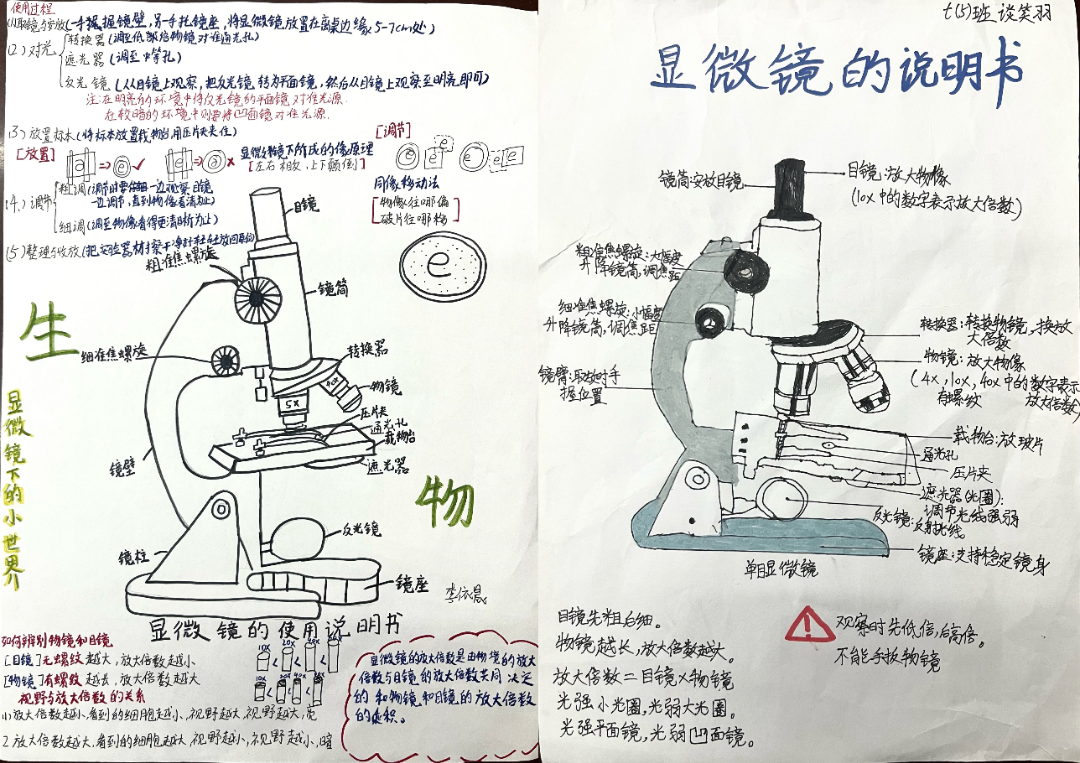 使用过程
(1)取镜与安放(一手握镜壁,另一手托镜座,将显微镜放置在离桌边缘5-7cm处)
(2)对光
转换器(调至低倍物镜对准通光孔)
遮光器(调至中等孔)
反光镜(从目镜上观察,把反光镜转为平面镜,然后从目镜上观察至明亮即可)
注:在明亮的环境中将反光镜的平面镜对准光源
在较暗的环境中则要将凹面镜对准光源.
(3)放置标本(将标本放置载物台,用压片夹夹住)
[放置]
[调节]
显微镜下所成的像原理
[左右相反,上下颠倒]
(4)调节
粗调(调节时要 一边观察目镜
一边调节,直到物像看清为止)
细调(调至物像看得更清晰为止)
同像移动法
[物像往哪偏
玻片往哪移]
e
(5)整理与收放(把实验器材擦干净并 放回原位)
目镜
粗准焦螺旋
镜筒
细准焦螺旋
转换器
物镜
5X
40X
压片夹
通光孔
载物台
遮光器
镜壁
反光镜
镜柱
镜座
李依晨
生
物
显微镜下的小世界
显微镜的使用说明书
如何辨别物镜和目镜.
[目镜]无螺纹越大,放大倍数越小
[物镜]有螺纹越长,放大倍数越大
视野与放大倍数的关系
1.放大倍数越小,看到的细胞越小,视野越大,视野越大,亮
2.放大倍数越大,看到的细胞越大,视野越小,视野越小,暗
显微镜的放大倍数是由物镜的放大
倍数与目镜的放大倍数共同决定
的 和物镜和目镜的放大倍数
的乘积。
七(5)班 谈笑羽
显微镜的说明书
镜筒:安放目镜
目镜:放大物像
(10x中的数字表示放大倍数)
粗准焦螺旋:大幅度
升降镜筒,调焦距
细准焦螺旋:小幅度
升降镜筒,调焦距
转换器:转换物镜,换放
大倍数
物镜:放大物像
(4x,10x,40x中的数字表示
有螺纹 放大倍数)
镜臂:取放时手
握位置
载物台:放玻片
通光孔
压片夹
遮光器(光圈):
调节光线强弱
反光镜:反射光线。
镜座:支持稳定镜身
单目显微镜
目镜先粗后细。
物镜越长,放大倍数越大。
放大倍数=目镜×物镜
光强小光圈,光弱大光圈。
光强平面镜,光弱凹面镜。
观察时先低倍,后高倍。
不能手拔物镜